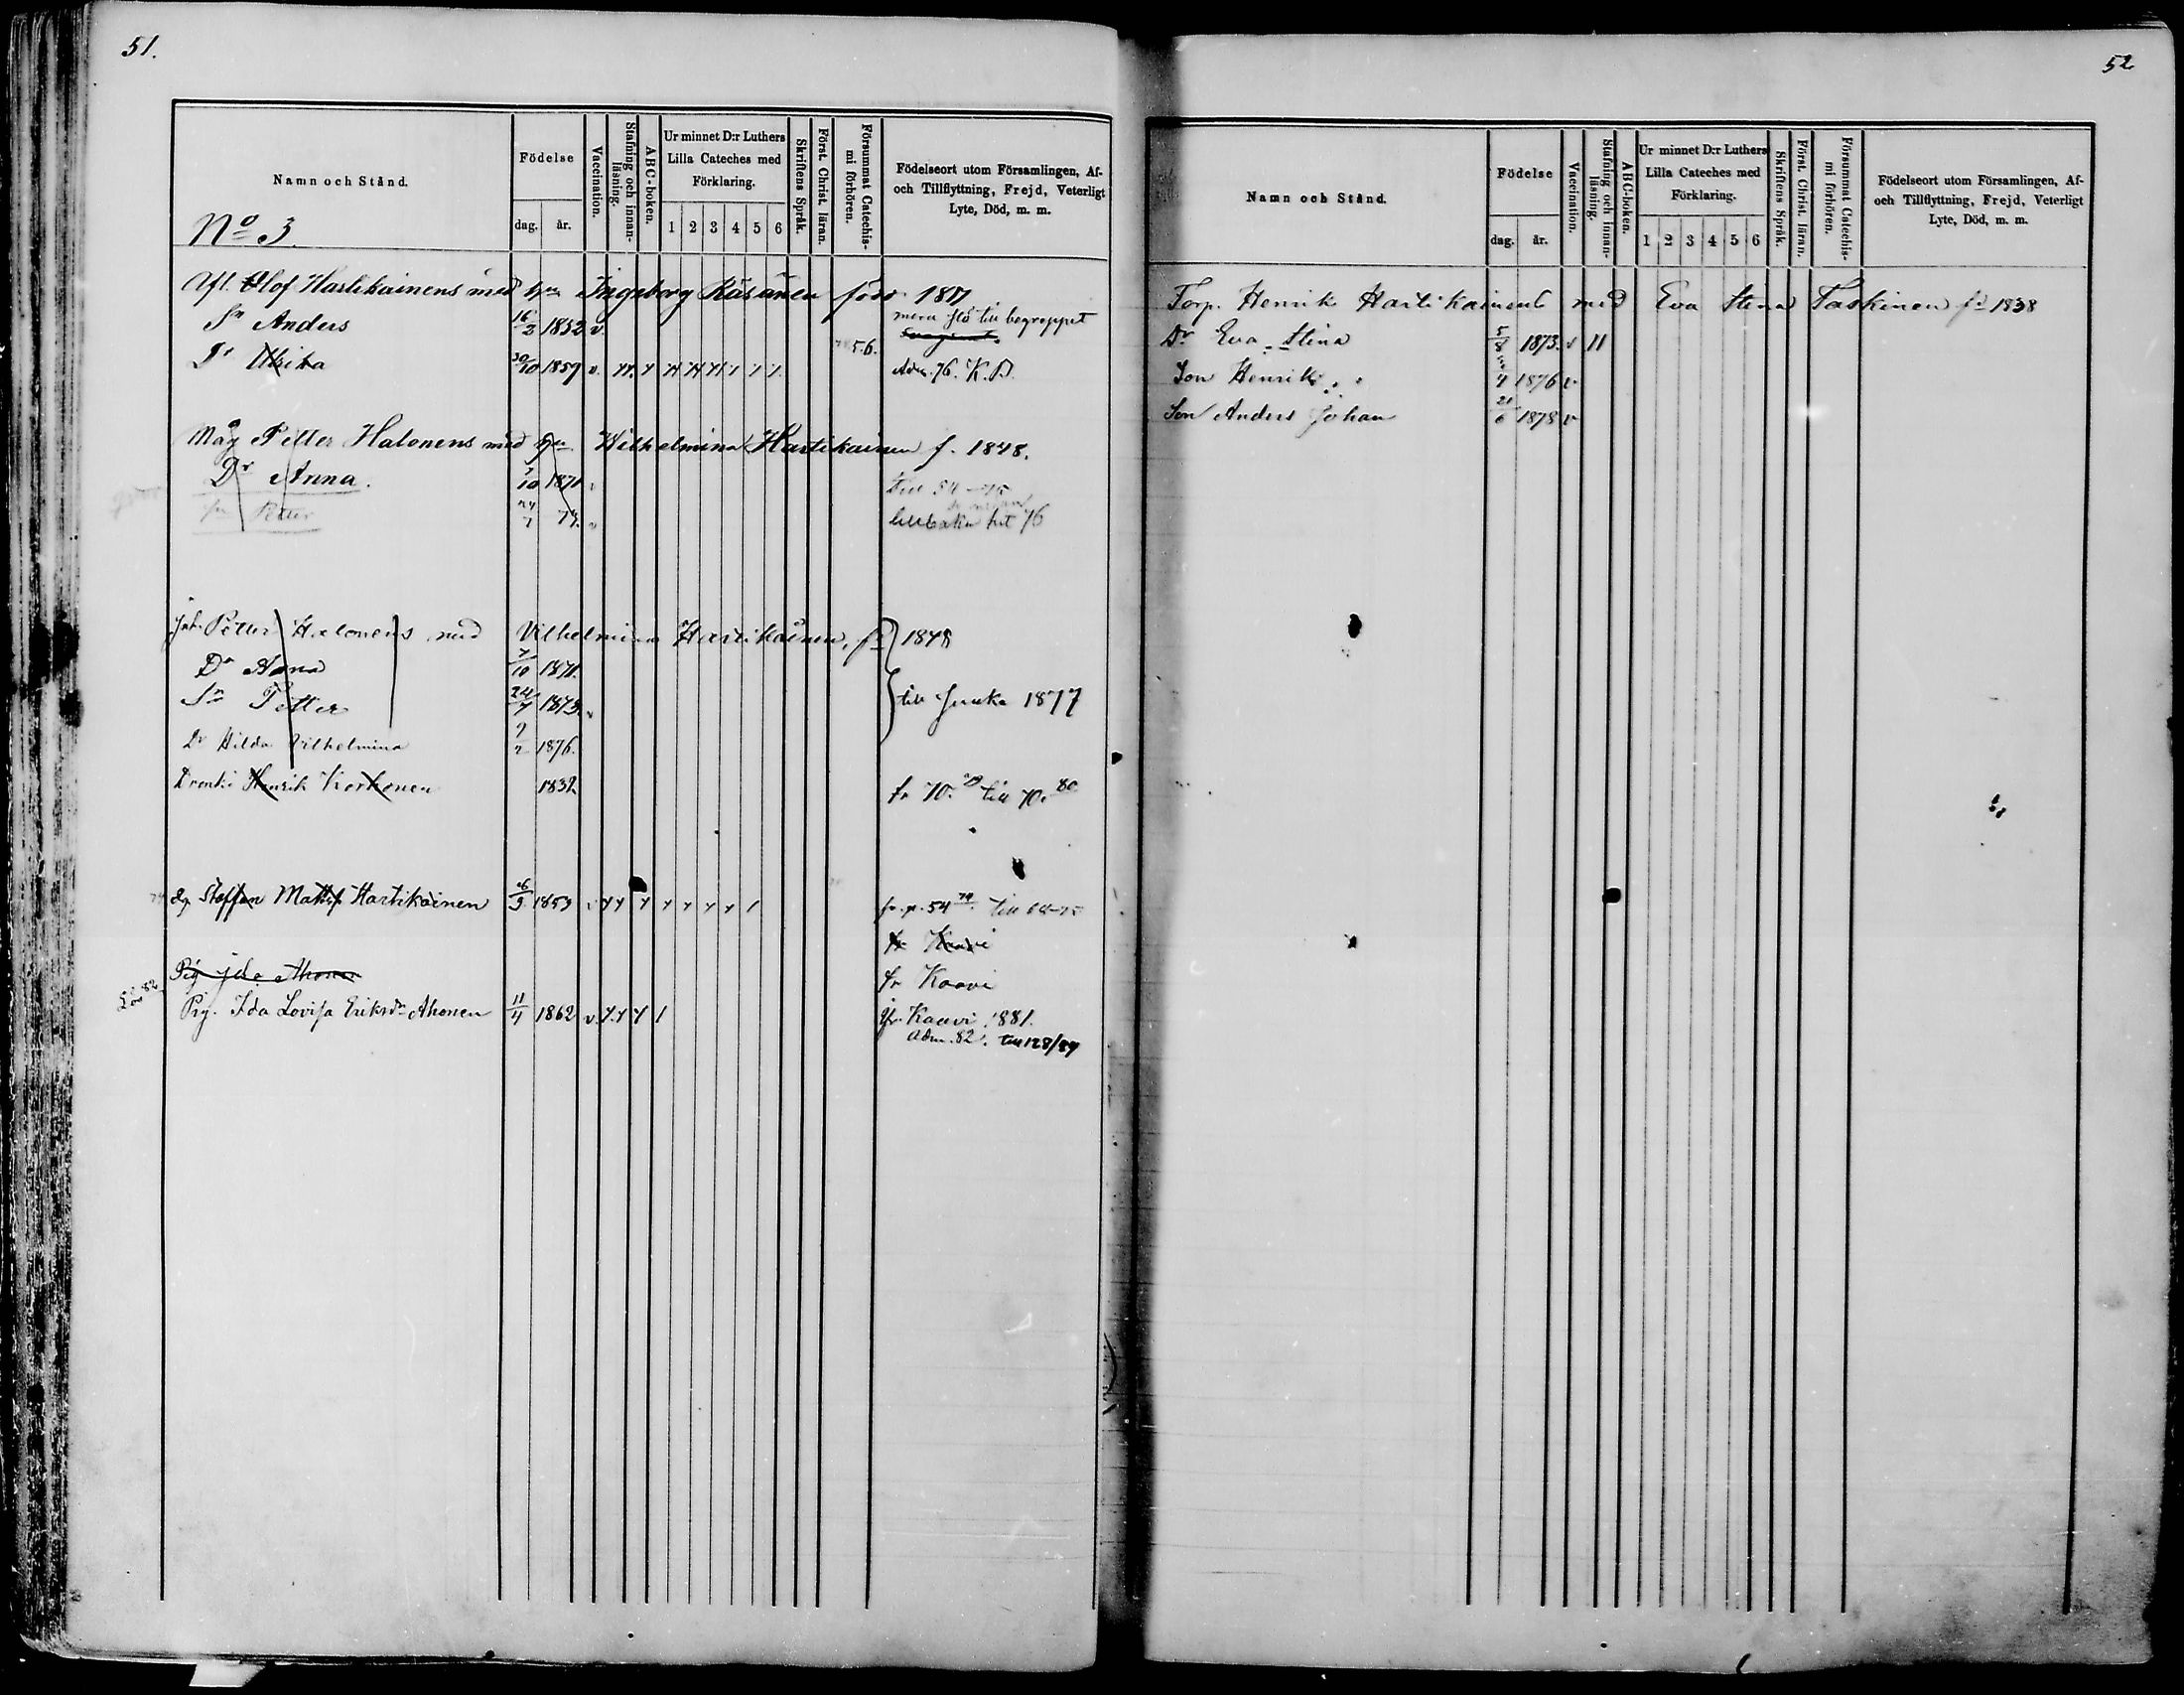 51.
Namn och Stånd.
Födelse
dag. år.
Vaccination.
Stafning och innan-läsning.
ABC-boken.
Ur minnet D:r Luthers
Lilla Cateches med
Förklaring.
1 2 3 4 5 6
Skriftens Språk.
Först. Christ. läran.
Försummat Catechis-mi förhören.
Födelseort utom Församlingen, Af-
och Tillflyttning, Frejd, Veterligt
Lyte, Död, m. m.
No 3.
Olof Hartikainens med Ingeborg Räsänen född
Sn Anders 16/3 1852 v. slö till begreppet
56.
Dr Ulrika 30/10 1859 v. Adm. 76. K.B.
Måg Petter Halonens med Hilhelmina Hartikainen f. 1848.
Dr Anna. 7/10 1871 v
Sn Petter 24/7 73. v hit 76
Petter Halonens med Vilhelmina Hartikainen, fd 1848
Dr Anna 7/10 1871.
Sn Petter 24/7 1873. v till Juuka 1877
Dr Hilda Vilhelmina 9/2 1876.
Henrik Korhonen 1832 fr 70. till 70. 80
Staffan Matts Hartikainen 26/3 1853 fr. p. 54 74. till
fr Kaavi
Pig Ida Ahonen fr Kaavi
82
Pig. Ida Lovisa Eriksdr Ahonen 11/4 1862 v fr Kaavi 1881.
Adm. 82. till 128/84
52
Namn och Stånd.
Födelse
dag. år.
Vaccination.
Stafning och innan-läsning.
ABC-boken.
Ur minnet D:r Luthers
Lilla Cateches med
Förklaring.
1 2 3 4 5 6
Skriftens Språk.
Först. Christ. läran.
Försummat Catechis-mi förhören.
Födelseort utom Församlingen, Af-
och Tillflyttning, Frejd, Veterligt
Lyte, Död, m. m.
Torp. Henrik Hartikainens med Eva Stina Taskinen fd 1838
Dr Eva Stina 5/8 1873. v 11
Son Henrik 4 1876 v
Son Anders Johan 21/6 1878 v